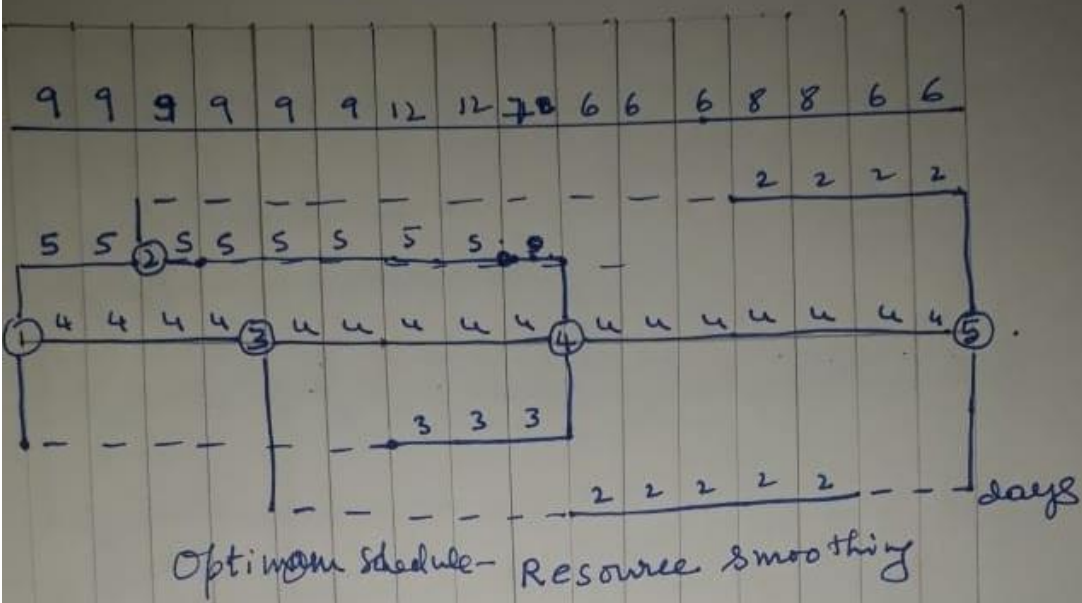 9 9 9 9 9 9 12 12 7 6 6 6 8 8 6 6
2 2 2 2
5 5 ② 5 5 5 5 5 5
① 4 4 4 4 ③ 4 4 4 4 4 ④ 4 4 4 4 4 4 4 ⑤ .
3 3 3
2 2 2 2 2 days
Optimum Schedule - Resource smoothing